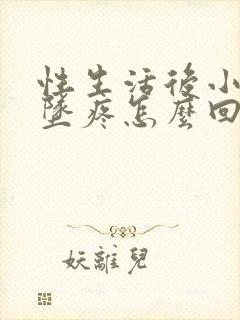 性生活後小
墜疼怎麼回
妖離兒